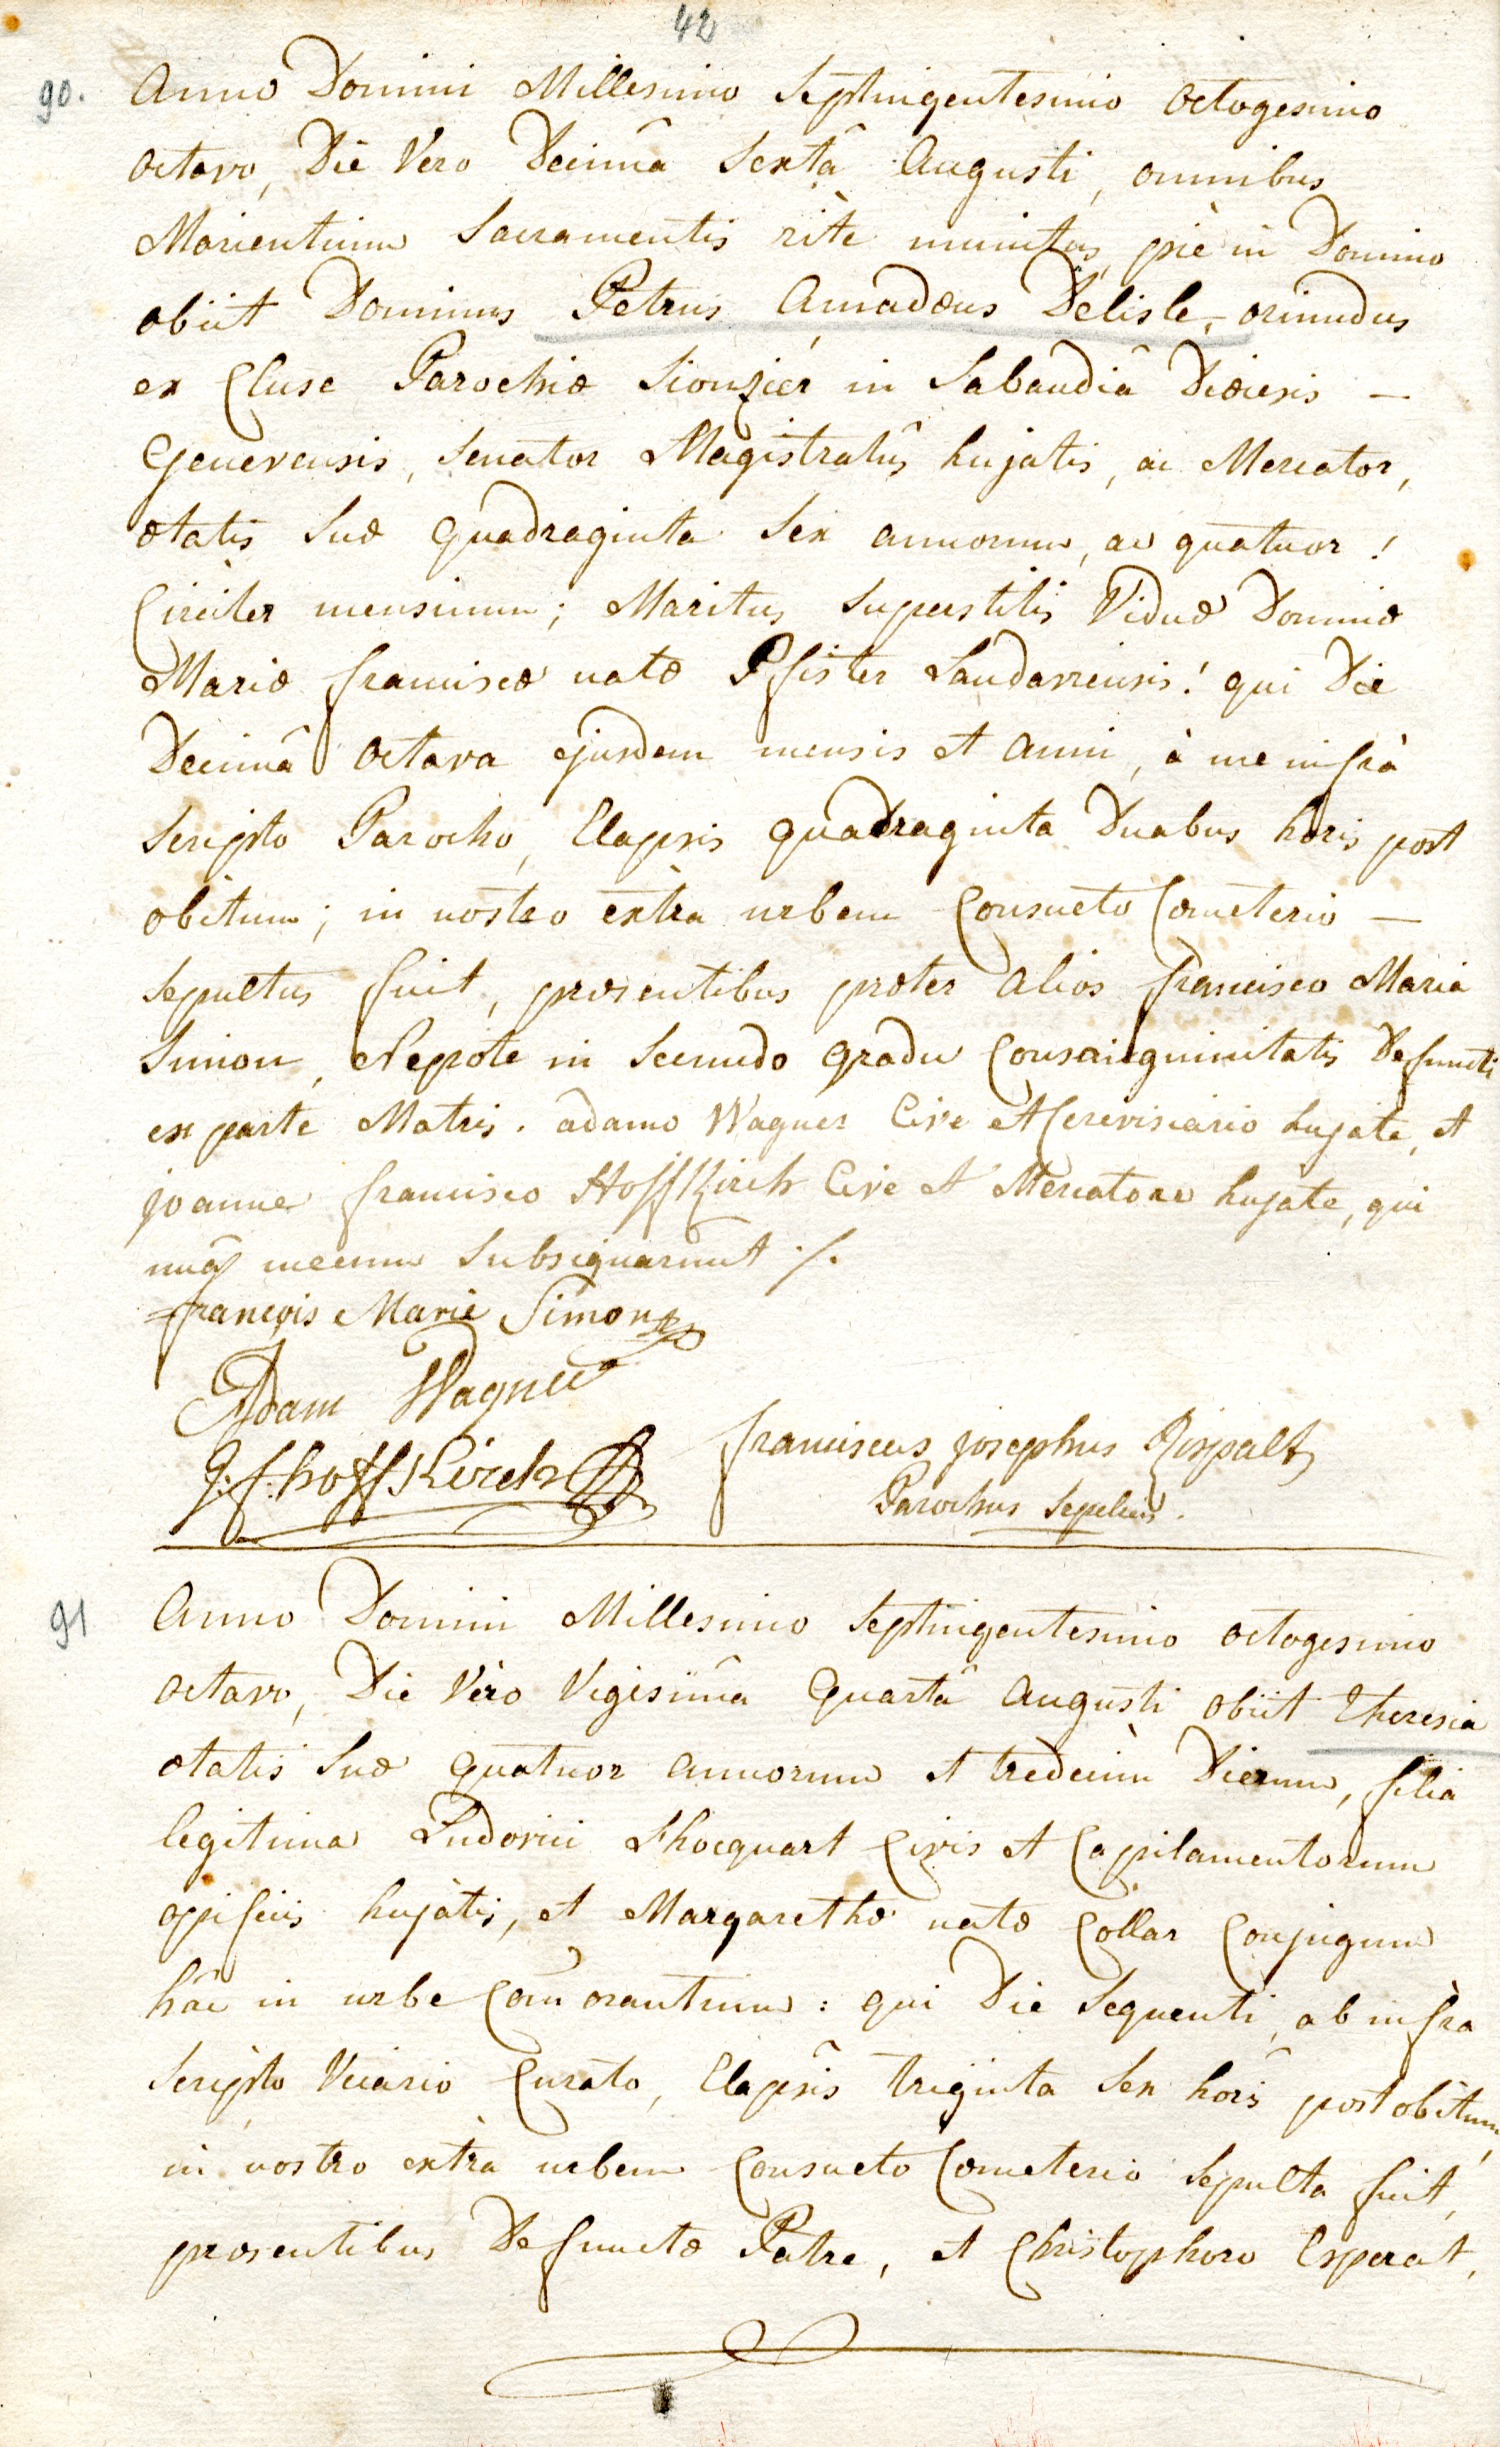 42
90. Anno Domini Millesimo Septingentesimo octogesimo
octavo, Die Vero Decimâ Sextâ Augusti, omnibus
Morientium Sacramentis rite munitus, piè in Domino
obiit Dominus Petrus Amadæus Delisle, oriundus
ex Cluse Parochiæ Sionzier in Sabaudiâ Diœcesis —
Genevensis, Senator Magistratûs hujatis, ac Mercator,
ætatis Suæ quadraginta Sex annorum, ac quatuor !
Circiter mensium; Maritus Superstitis Viduæ Dominæ
Mariæ franciscæ natæ Pfister Landaviensis! qui Die
Decimâ octava ejusdem mensis et anni, à me infrà
Scripto Parocho, Elapsis quadraginta Duabus horis post
obitum; in nostro extra urbem Consueto Cœmeterio —
sepultus fuit, præsentibus præter alios francisco Maria
Simon, Nepote in Secundo gradu Consanguinitatis Defuncti
ex parte Matris. adamo Wagner Cive et Cerevisiario hujate, et
joanne francisco Hoffkirch Cive et Mercatore hujate, qui
unà mecum Subsignarunt ./.
françois Marie Simon
Adam Wagner
J. f. hoffkirch
franciscus josephus Rispalt
Parochus Sepeliens.
91 Anno Domini Millesimo Septingentesimo octogesimo
octavo, Die Vèro Vigesimâ Quartâ Augusti obiit Theresia
ætatis Suæ quatuor annorum et tredecim Dierum, filia
legitima Ludovici Shocquart Civis et Capilamentorum
opificis hujàtis, et Margarethæ natæ Collar Conjugum
hâc in urbe Com̃orantium: qui Die Sequenti, ab infra
Scripto Vicario Curato, Elapsis triginta Sex horis post obitum,
in nostro extra urbem Consueto Cœmeterio Sepulta fuit,
præsentibus Defunctæ Patre, et Christophoro Esperat,